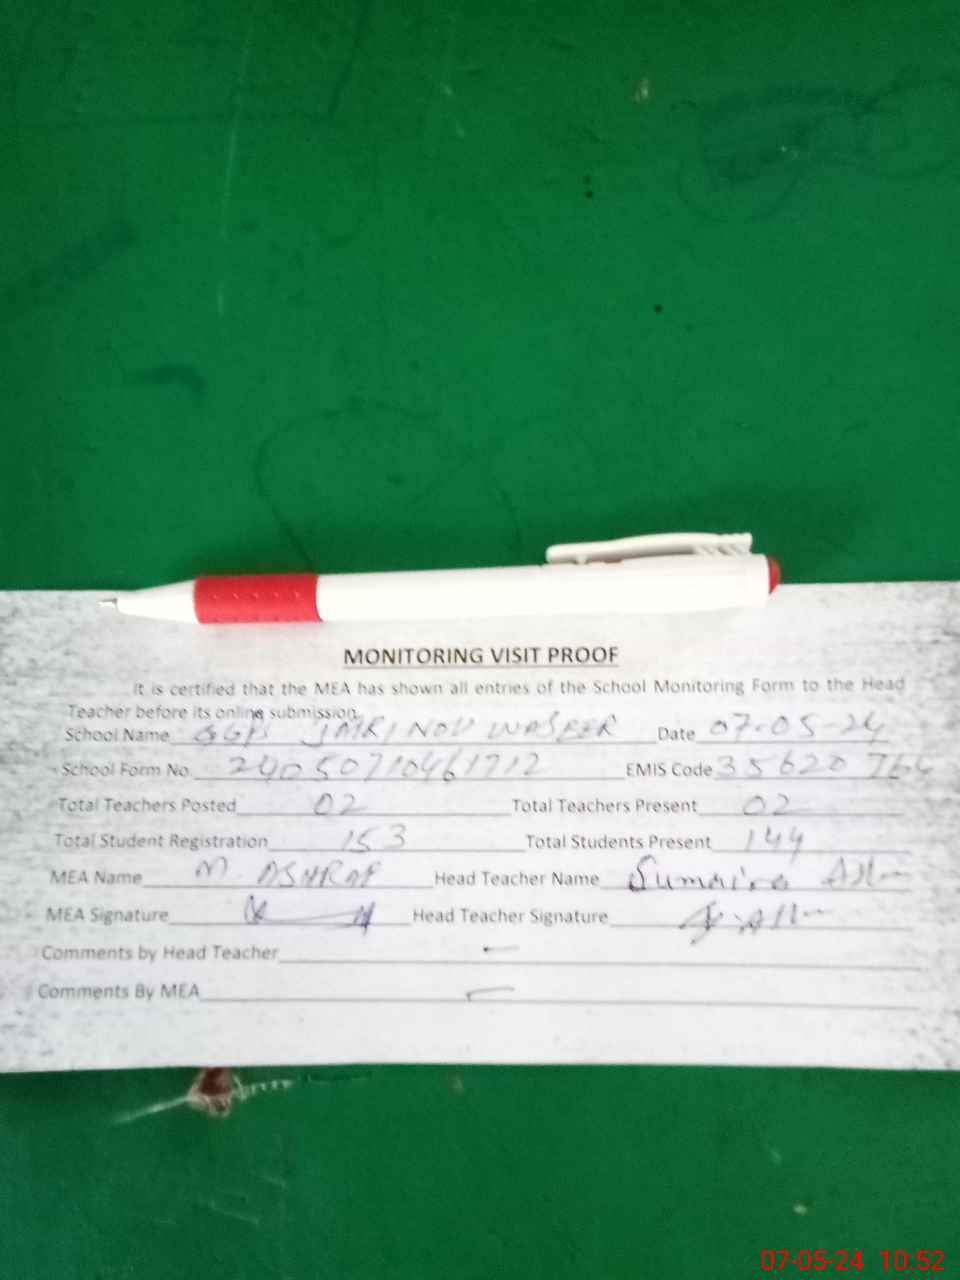 MONITORING VISIT PROOF
It is certified that the MEA has shown all entries of the School Monitoring Form to the Head
Teacher before its online submission.
School Name Date 07-05-24
School Form No. 24050710461712 EMIS Code 35620
Total Teachers Posted 02 Total Teachers Present 02
Total Student Registration 153 Total Students Present 144
MEA Name M. ASHRAF Head Teacher Name Sumaira
MEA Signature Head Teacher Signature
Comments by Head Teacher
Comments By MEA
07-05-24 10:52